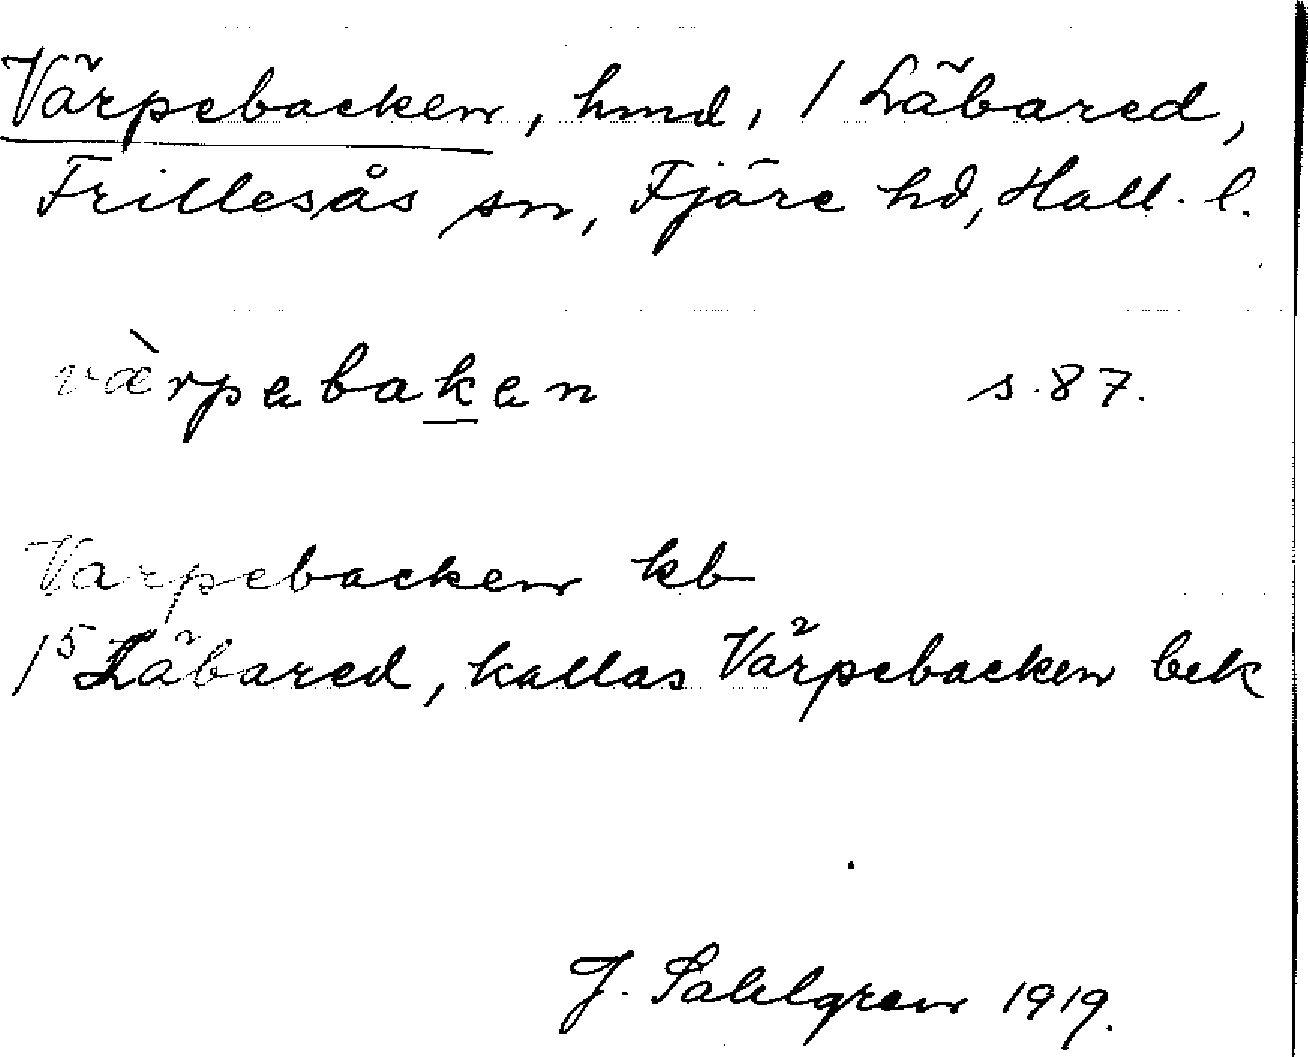 Värpebacken, hmd, 1 Läbared,
Frillesås sn, Fjäre hd, Hall. l.
værpebaken s. 87.
Varpebacken kb
1⁵ Läbared, kallas Värpebacken bek
J. Sahlgren 1919.